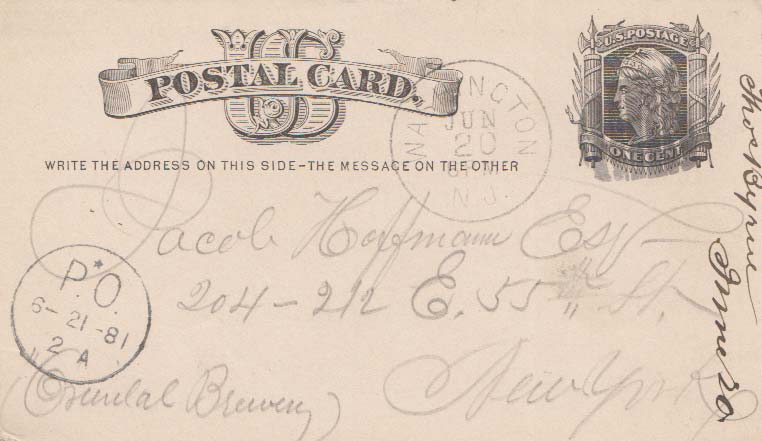 US
POSTAL CARD.
U.S. POSTAGE
ONE CENT
WRITE THE ADDRESS ON THIS SIDE-THE MESSAGE ON THE OTHER
WASHINGTON
JUN
20
N.J.
Jacob Hoffmann Esq
204-212 E. 55th St.
New York
(Oriental Brewery)
P.O.
6-21-81
2 A
Thos Byrne
June 20